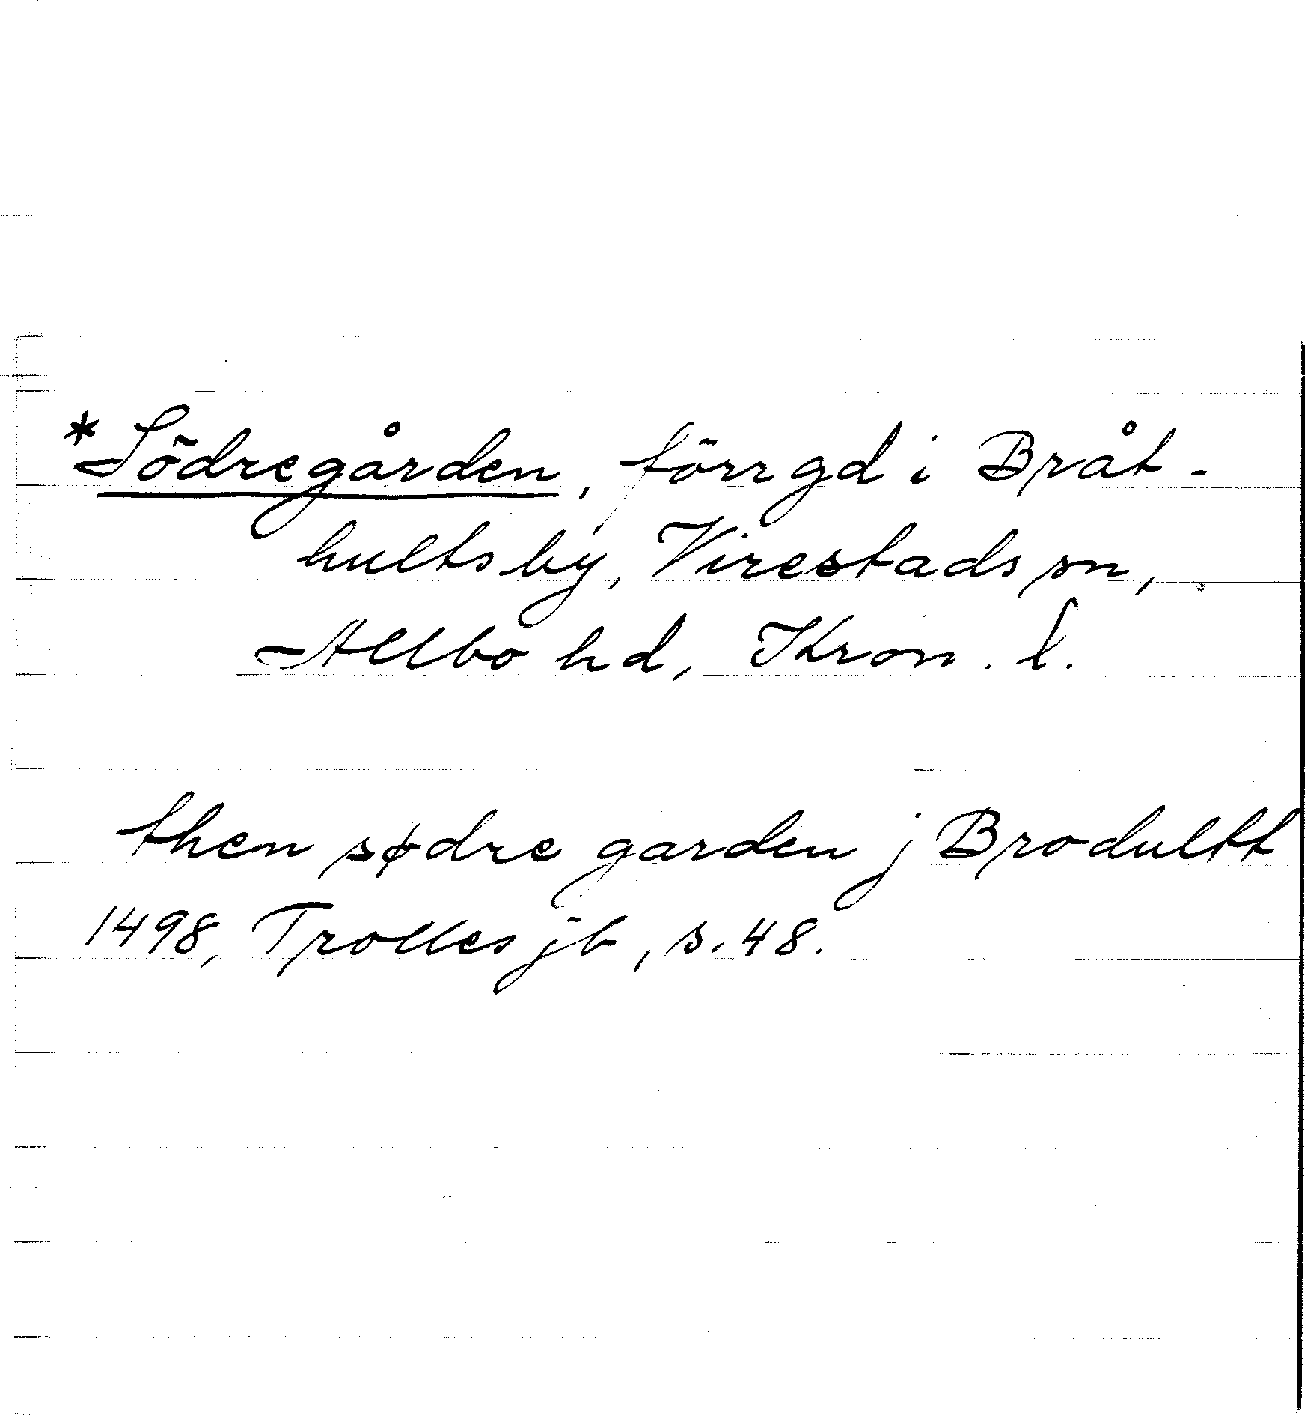 *Södregården, förr gd i Bråt-
hults by, Virestads sn,
Allbo hd, Kron. l.
then sødre garden j Brodultt
1498, Trolles jb, s. 48.